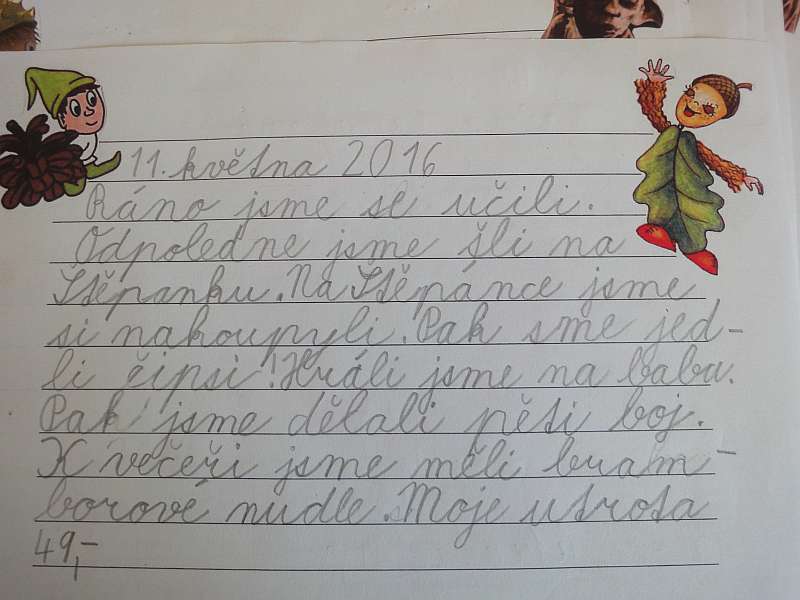 11. května 2016
Ráno jsme se učili.
Odpoledne jsme šli na
Štěpanku. Na Štěpánce jsme
si nakoupyli. Pak sme jed-
li čipsi! Hráli jsme na babu.
Pak jsme dělali pěti boj.
K večeři jsme měli bram-
borové nudle. Moje utrota
49,-